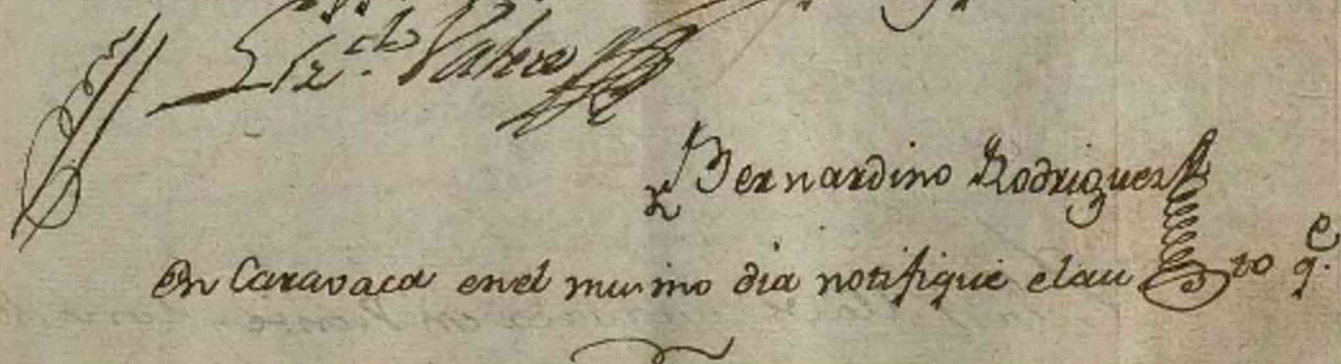 Liz.do Valera
Bernardino Rodriguez
En Caravaca en el mismo dia notifique el au to q.e